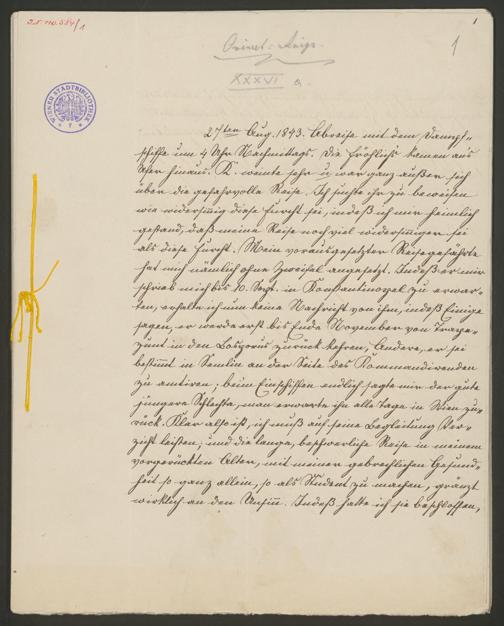 I.N. 110.584/1
1
1
Orient-Reise.
XXXVI a.
WIENER STADTBIBLIOTHEK
27ten Aug. 1843. Abreise mit dem Dampf-
schiffe um 4 Uhr Nachmittags. Die Fröhlichs kamen aus
hinaus. K. weinte sehr u war ganz außer sich
über die gefahrvolle Reise. Ich suchte ihr zu beweisen
wie widersinnig diese Furcht sei, indeß ich mir heimlich
gestand, daß meine Reise noch viel widersinniger sei
als diese Furcht. Mein vorausgesetzter Reisegefährte
hat mich nämlich ohne Zweifel angesetzt. Indeß er mir
schrieb mich bis 10. Sept. in Konstantinopel zu erwar-
ten, erhalte ich nun keine Nachricht von ihm, indeß Einige
sagen, er werde erst bis Ende November von Trape-
zunt in den Bosporus zurück kehren, Andere, er sei
bestimmt in Semlin an der Seite des Kommandirenden
zu amtiren; beim Einschiffen endlich sagte mir der gute
jüngere Schlechta, man erwarte ihn alle Tage in Wien zu-
rück. Klar also ist, ich muß auf seine Begleitung Ver-
zicht leisten; und die lange, beschwerliche Reise in meinem
vorgerückten Alter, mit meiner gebrechlichen Gesund-
heit so ganz allein, so als Student zu machen, gränzt
wirklich an den Unsinn. Indeß hatte ich sie beschlossen,